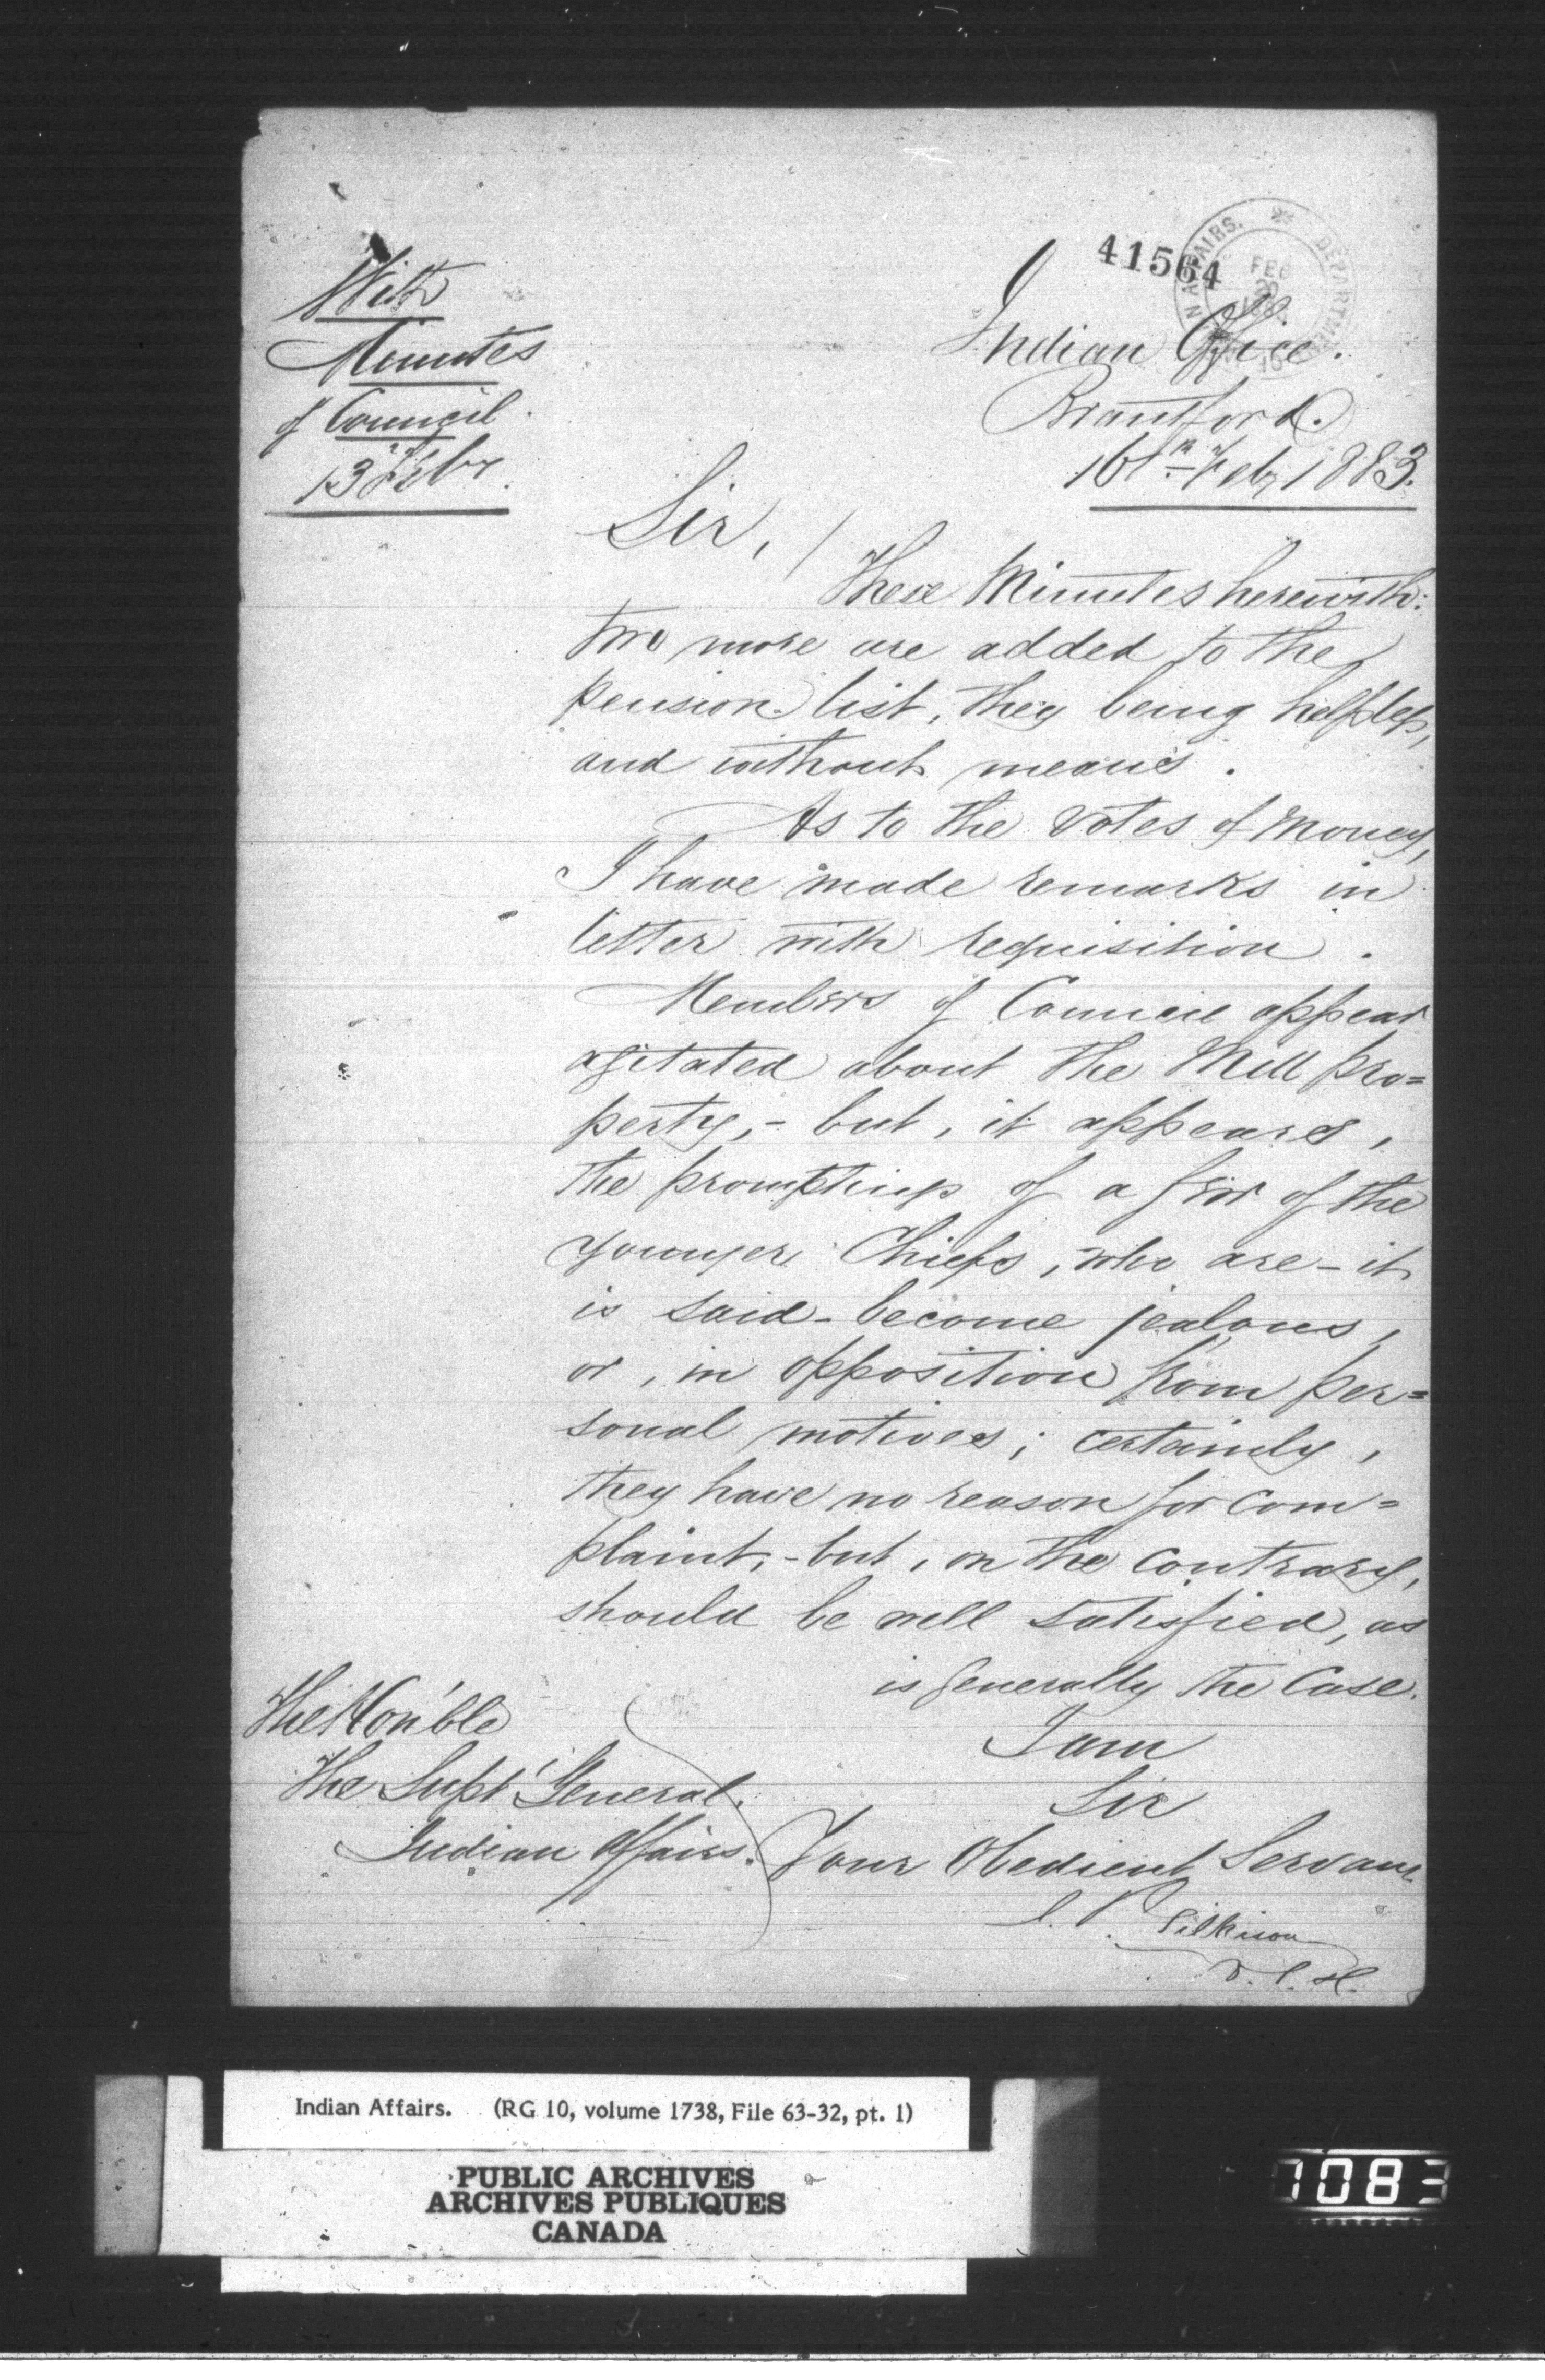 With
Minutes
of Council
13 Feby.
41564
INDIAN AFFAIRS. * DEPARTMENT
FEB
20
1883
Indian Office.
Brantford.
16th Feby 1883.
Sir,
These Minutes herewith:
two more are added to the
pension list, they being helpless,
and without means.
As to the votes of Money,
I have made remarks in
letter with requisition.
Members of Council appear
agitated about the Mill pro=
perty, - but, it appears,
the promptings of a few of the
younger Chiefs, who are - it
is said - become jealous,
or, in opposition from per=
sonal motives; certainly,
they have no reason for com=
plaint, - but, on the contrary,
should be well satisfied, as
is generally the case.
The Hon'ble
The Supt General.
Indian Affairs.
I am
Sir
Your Obedient Servant
J. T. Gilkison
V. S. &c.
Indian Affairs. (RG 10, volume 1738, File 63-32, pt. 1)
PUBLIC ARCHIVES
ARCHIVES PUBLIQUES
CANADA
1083